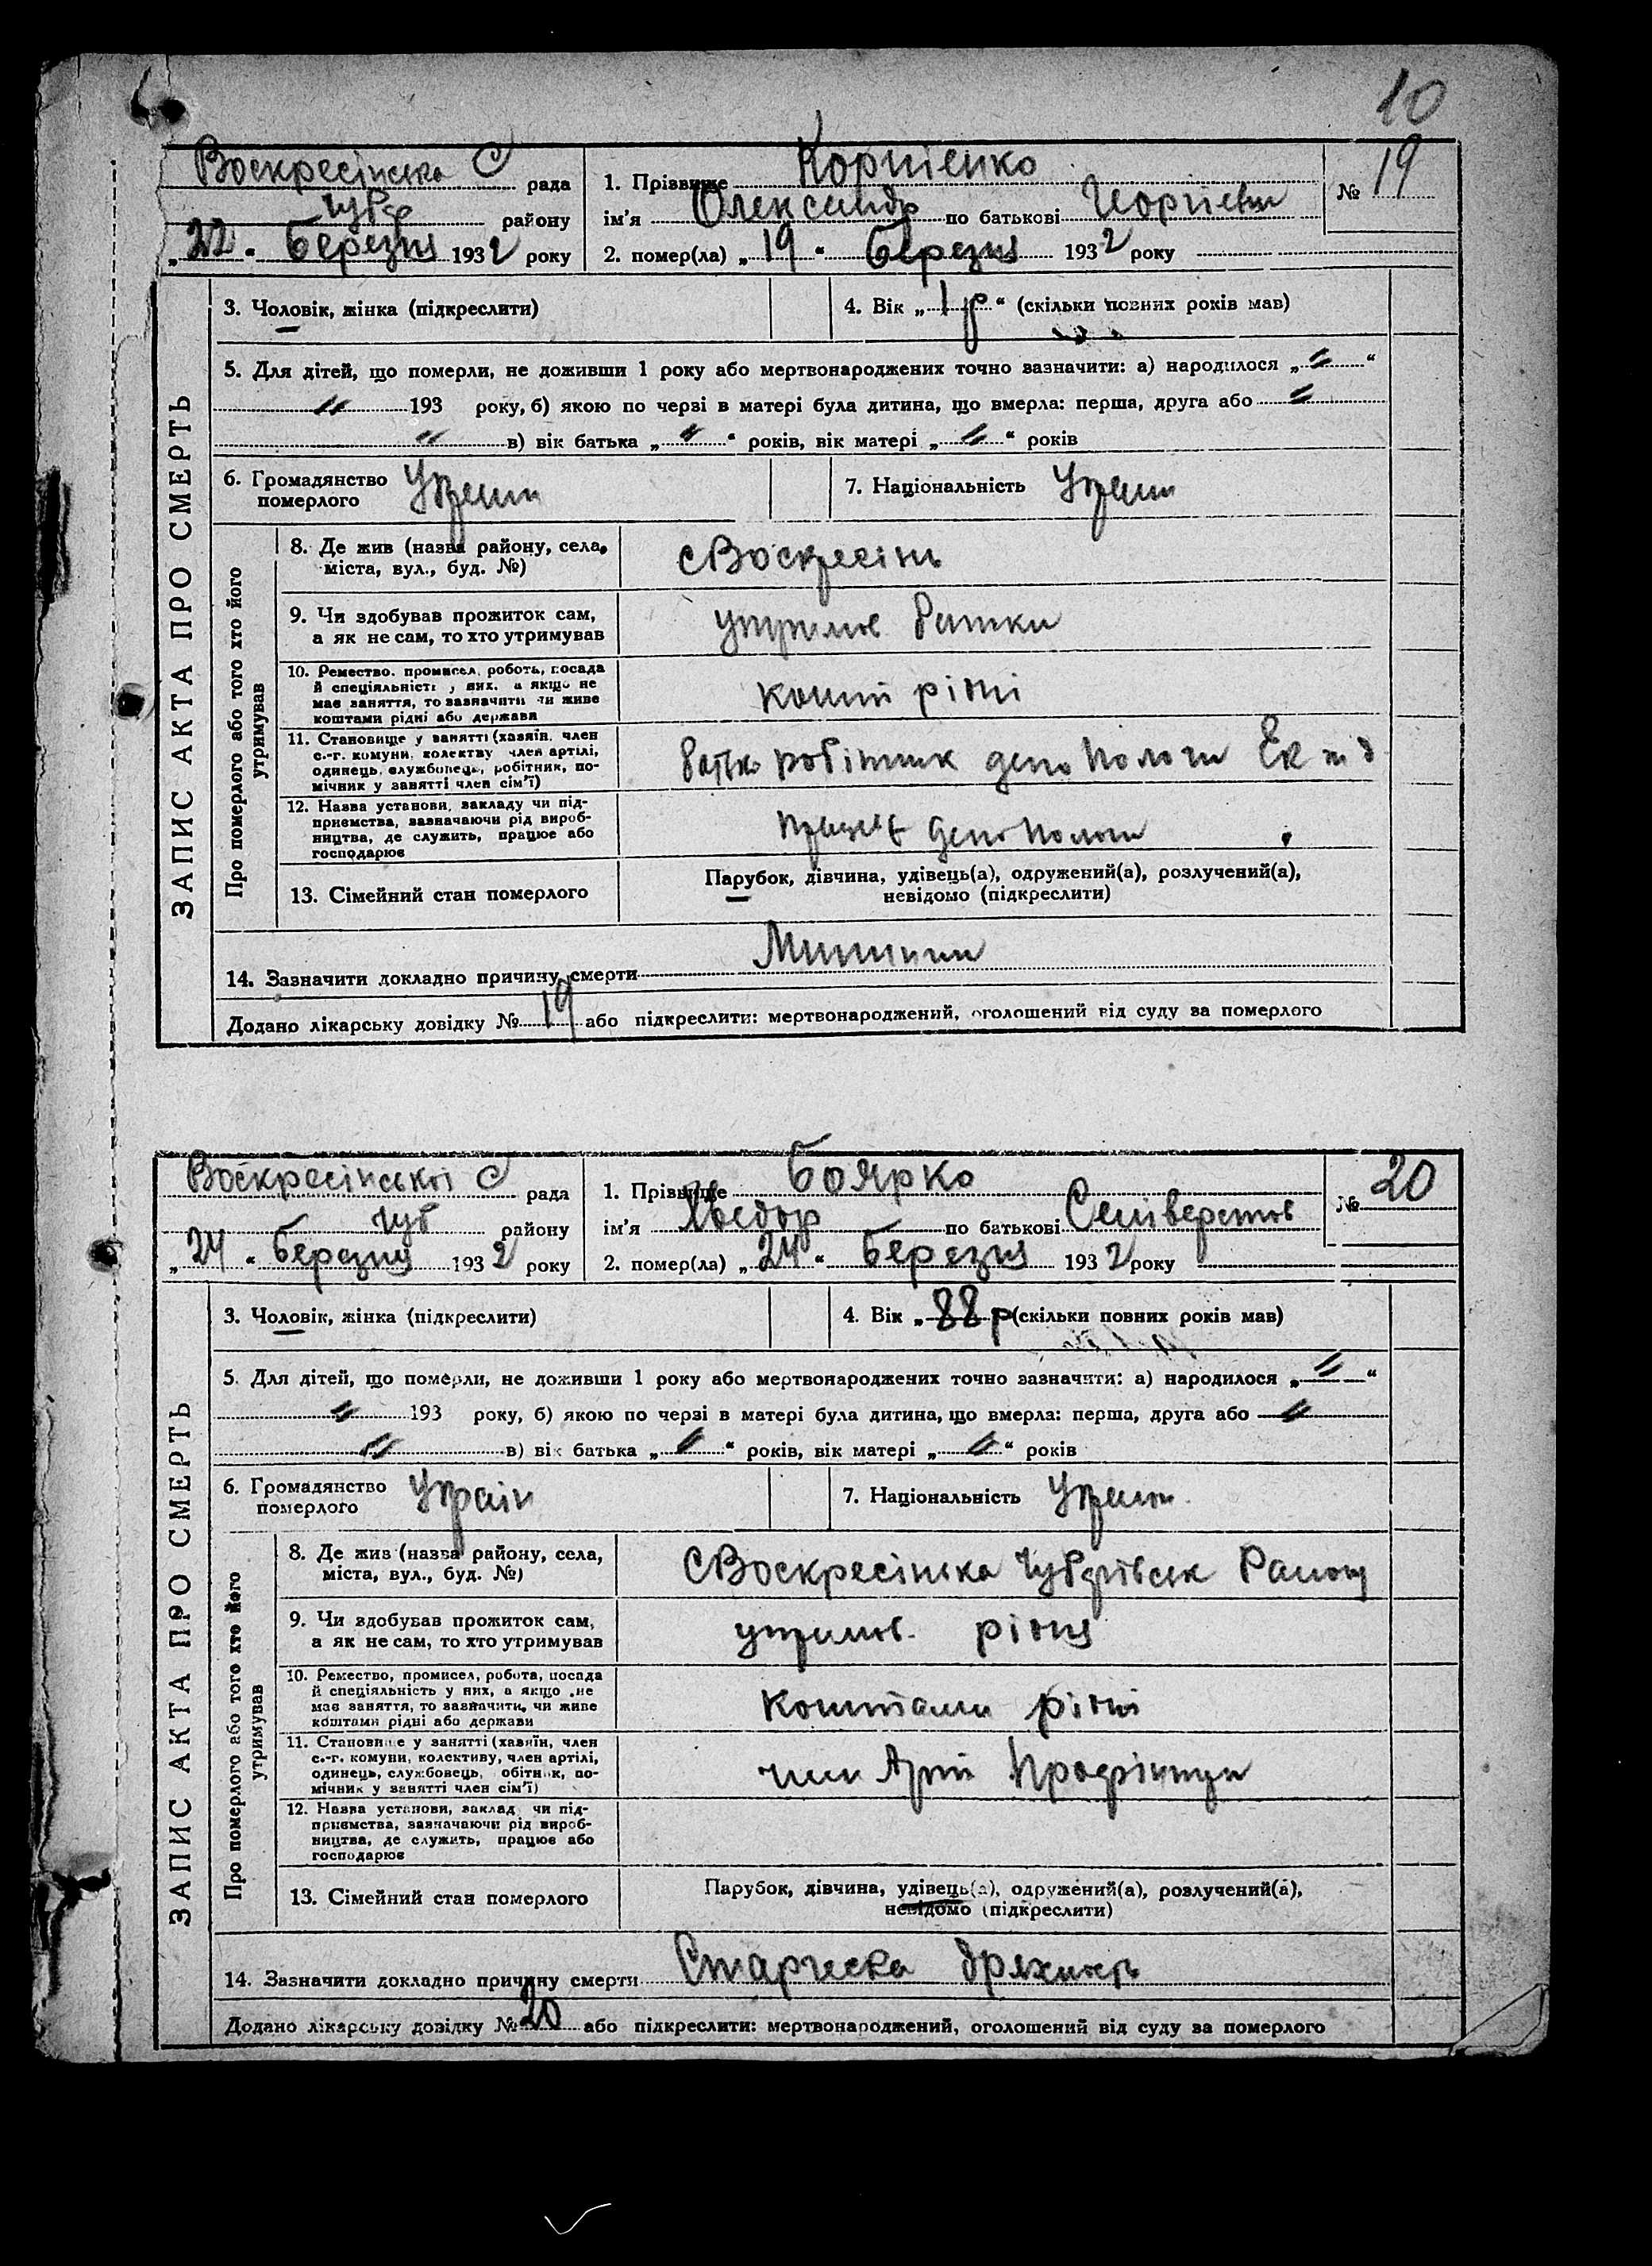 10
Воскресінська С рада
Чубр району
„22" березня 1932 року
1. Прізвище Корнієнко
ім'я Олександр по батькові
№ 19
2. помер(ла) „19" березня 1932 року
ЗАПИС АКТА ПРО СМЕРТЬ
3. Чоловік, жінка (підкреслити)
4. Вік „1 р" (скільки повних років мав)
5. Для дітей, що померли, не доживши 1 року або мертвонароджених точно зазначити: а) народилося „ // "
// 193 року, б) якою по черзі в матері була дитина, що вмерла: перша, друга або //
// в) вік батька „ // " років, вік матері „ // " років
6. Громадянство
померлого Украин
7. Національність Украин
Про померлого або того хто його
утримував
8. Де жив (назва району, села,
міста, вул., буд. №)
с Воскресінь
9. Чи здобував прожиток сам,
а як не сам, то хто утримував
утримов батки
10. Ремество, промисел, робота, посада
й спеціяльність у них, а якщо не
має заняття, то зазначити чи живе
коштами рідні або держави
кошт рідні
11. Становище у занятті (хазяїн, член
с.-г. комуни, колективу член артілі,
одинець, службовець, робітник, по-
мічник у занятті член сім'ї)
батько робітник депо Пологи Ек ж д
12. Назва установи, закладу чи під-
приємства, зазначаючи рід вироб-
ництва, де служить, працює або
господарює
працює депо Пологи
13. Сімейний стан померлого
Парубок, дівчина, удівець(а), одружений(а), розлучений(а),
невідомо (підкреслити)
14. Зазначити докладно причину смерти
Додано лікарську довідку № 19 або підкреслити: мертвонароджений, оголошений від суду за померлого
Воскресінської С рада
Чуб району
„24" березня 1932 року
1. Прізвище Боярко
ім'я Хведор по батькові Селіверстов
№ 20
2. помер(ла) „24" березня 1932 року
ЗАПИС АКТА ПРО СМЕРТЬ
3. Чоловік, жінка (підкреслити)
4. Вік „88 р (скільки повних років мав)
5. Для дітей, що померли, не доживши 1 року або мертвонароджених точно зазначити: а) народилося „ // "
// 193 року, б) якою по черзі в матері була дитина, що вмерла: перша, друга або //
// в) вік батька „ // " років, вік матері „ // " років
6. Громадянство
померлого Украін
7. Національність Украин
Про померлого або того хто його
утримував
8. Де жив (назва району, села,
міста, вул., буд. №)
с Воскресінка Чубарівськ Району
9. Чи здобував прожиток сам,
а як не сам, то хто утримував
утримов. рідня
10. Ремество, промисел, робота, посада
й спеціяльність у них, а якщо не
має заняття, то зазначити, чи живе
коштами рідні або держави
коштами рідні
11. Становище у занятті (хазяїн, член
с.-г. комуни, колективу, член артілі,
одинець, службовець, обітник, по-
мічник у занятті член сім'ї)
член Арті Профінтерн
12. Назва установи, заклад чи під-
приємства, зазначаючи рід вироб-
ництва, де служить, працює або
господарює
13. Сімейний стан померлого
Парубок, дівчина, удівець(а), одружений(а), розлучений(а),
невідомо (підкреслити)
14. Зазначити докладно причину смерти Старческа дряхлість
Додано лікарську довідку № 20 або підкреслити: мертвонароджений, оголошений від суду за померлого